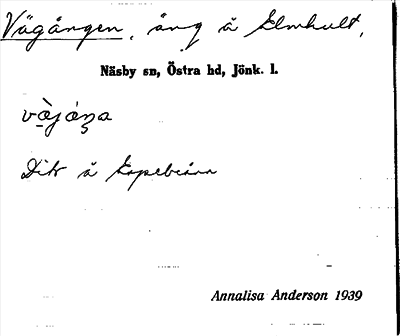 Vägången, äng å Elmhult,
Näsby sn, Östra hd, Jönk. l.
vä̀jáŋa
Dito å
Annalisa Anderson 1939